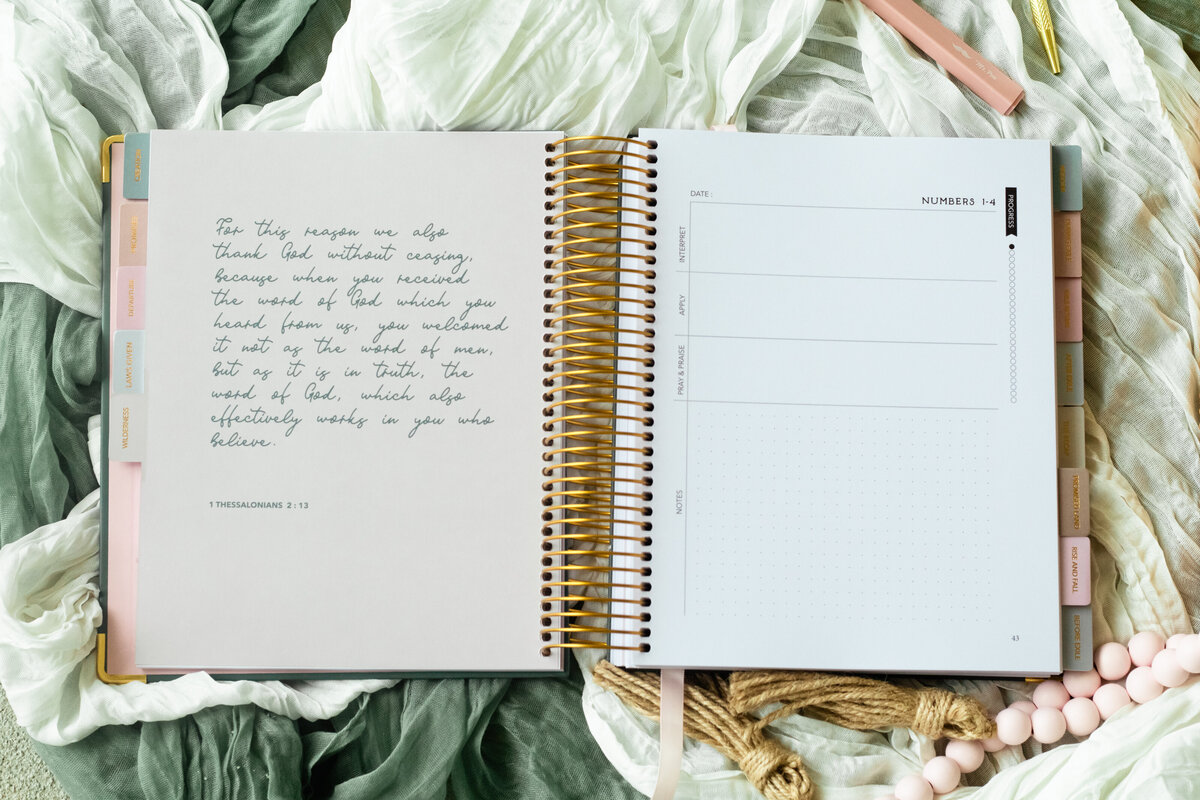 GENESIS
PROMISE
LAWS GIVEN
WILDERNESS
For this reason we also
thank God without ceasing,
because when you received
the word of God which you
heard from us, you welcomed
it not as the word of men,
but as it is in truth, the
word of God, which also
effectively works in you who
believe.
1 THESSALONIANS 2:13
DATE :
NUMBERS 1-4
PROGRESS
INTERPRET
APPLY
PRAY & PRAISE
NOTES
43
RISE AND FALL
BEFORE EXILE